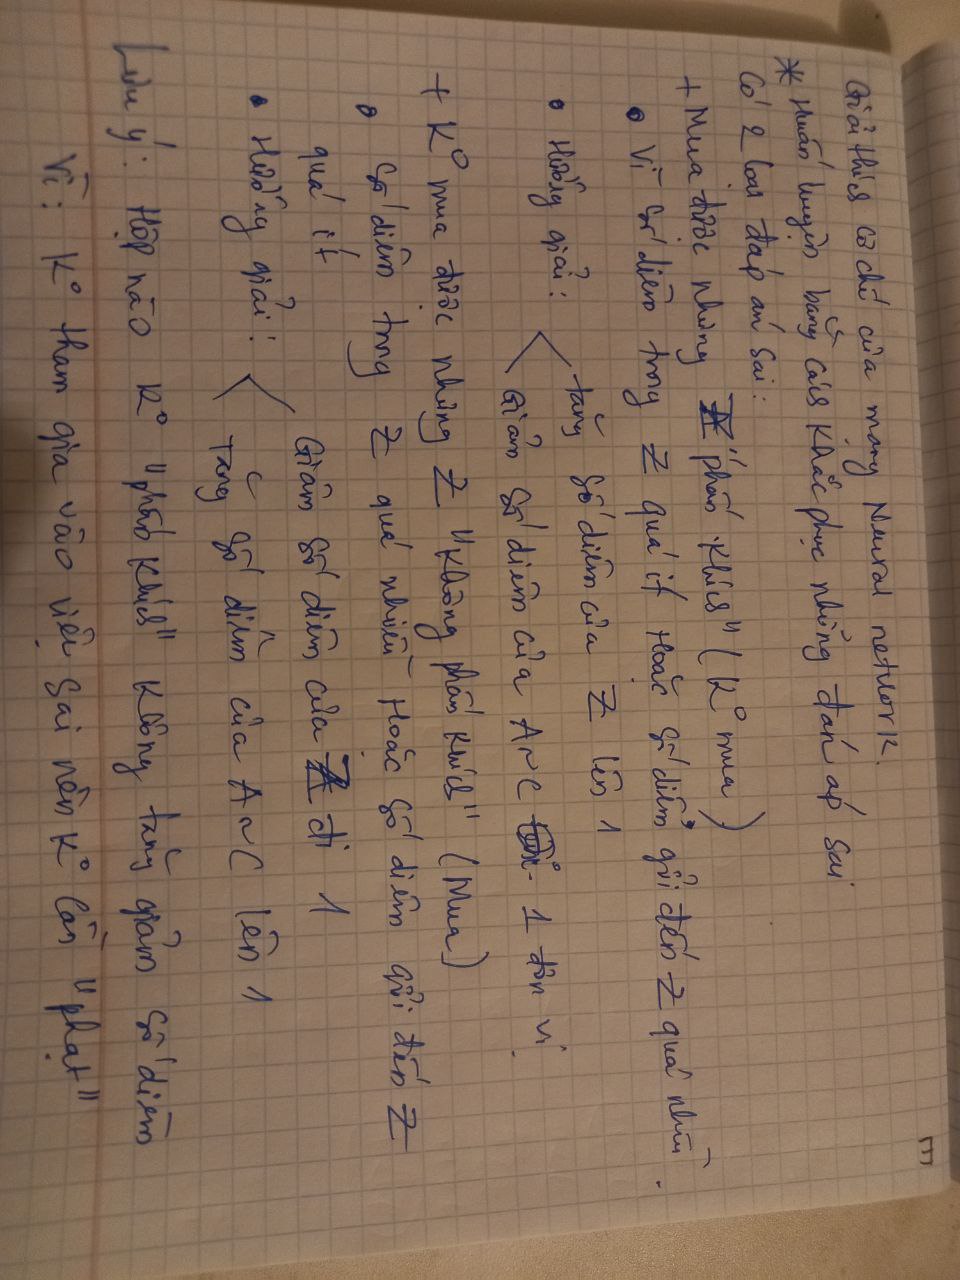 Giải thích cơ chế của mạng Neural network.
* Huấn luyện bằng cách khắc phục những đán áp sai
Có 2 loại đáp án sai:
+ Mua được những Z "phấn khích" (K° mua)
• Vì số điểm trong Z quá ít Hoặc số điểm gửi đến Z quá nhiều.
• Hướng giải: tăng số điểm của Z lên 1
Giảm số điểm của A~C 1 đơn vị.
+ K° mua được những Z "Không phấn khích" (Mua)
• Số điểm trong Z quá nhiều Hoặc số điểm gửi đến Z
quá ít
• Hướng giải: Giảm số điểm của Z đi 1
Tăng số điểm của A~C lên 1
Lưu ý: Hộp nào K° "phấn khích" không tăng giảm số điểm
Vì: K° tham gia vào việc sai nên K° cần "phạt"